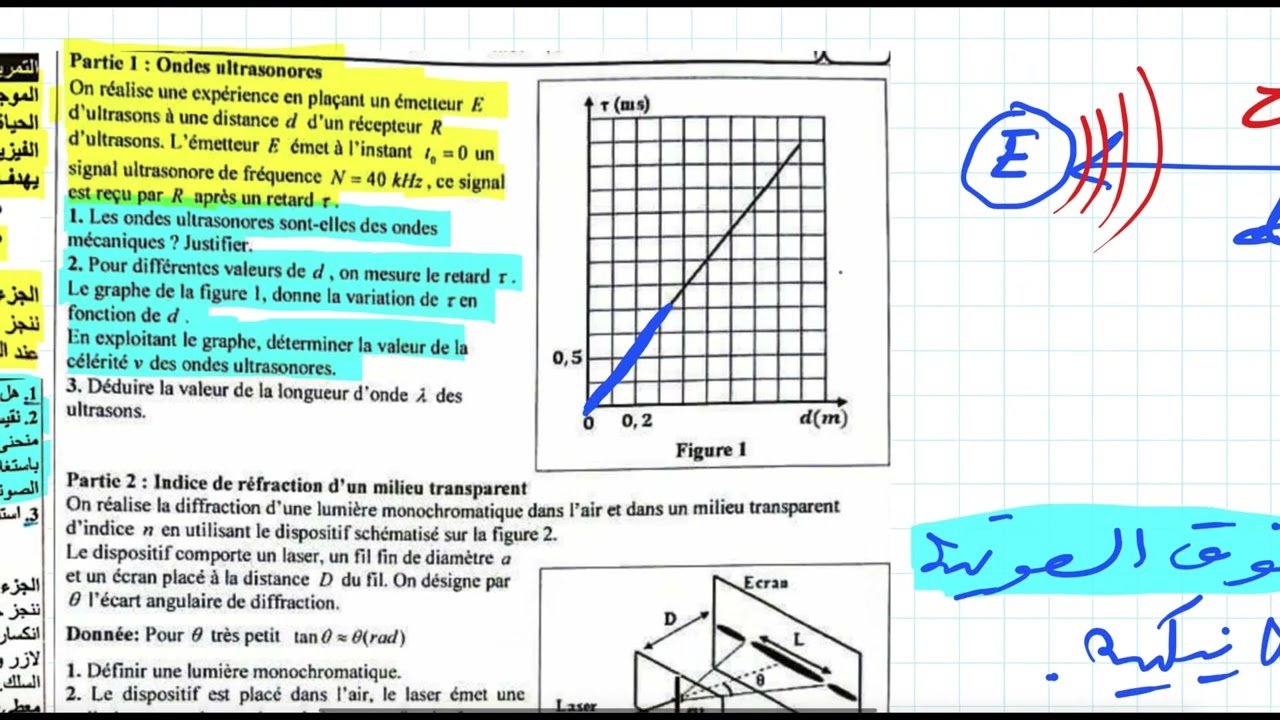 Partie 1 : Ondes ultrasonores
On réalise une expérience en plaçant un émetteur E
d'ultrasons à une distance d d'un récepteur R
d'ultrasons. L'émetteur E émet à l'instant t₀ = 0 un
signal ultrasonore de fréquence N = 40 kHz, ce signal
est reçu par R après un retard τ.
1. Les ondes ultrasonores sont-elles des ondes
mécaniques ? Justifier.
2. Pour différentes valeurs de d, on mesure le retard τ.
Le graphe de la figure 1, donne la variation de τ en
fonction de d.
En exploitant le graphe, déterminer la valeur de la
célérité v des ondes ultrasonores.
3. Déduire la valeur de la longueur d'onde λ des
ultrasons.
τ (ms)
0,5
0
0,2
d(m)
Figure 1
E
d
Partie 2 : Indice de réfraction d'un milieu transparent
On réalise la diffraction d'une lumière monochromatique dans l'air et dans un milieu transparent
d'indice n en utilisant le dispositif schématisé sur la figure 2.
Le dispositif comporte un laser, un fil fin de diamètre a
et un écran placé à la distance D du fil. On désigne par
θ l'écart angulaire de diffraction.
Donnée: Pour θ très petit tan θ ≈ θ(rad)
1. Définir une lumière monochromatique.
2. Le dispositif est placé dans l'air, le laser émet une
Ecran
D
L
θ
Laser
الجزء
ننجز
عند
1. هل
2.
منحنى
3.
الجزء
ننجز
الصوتية